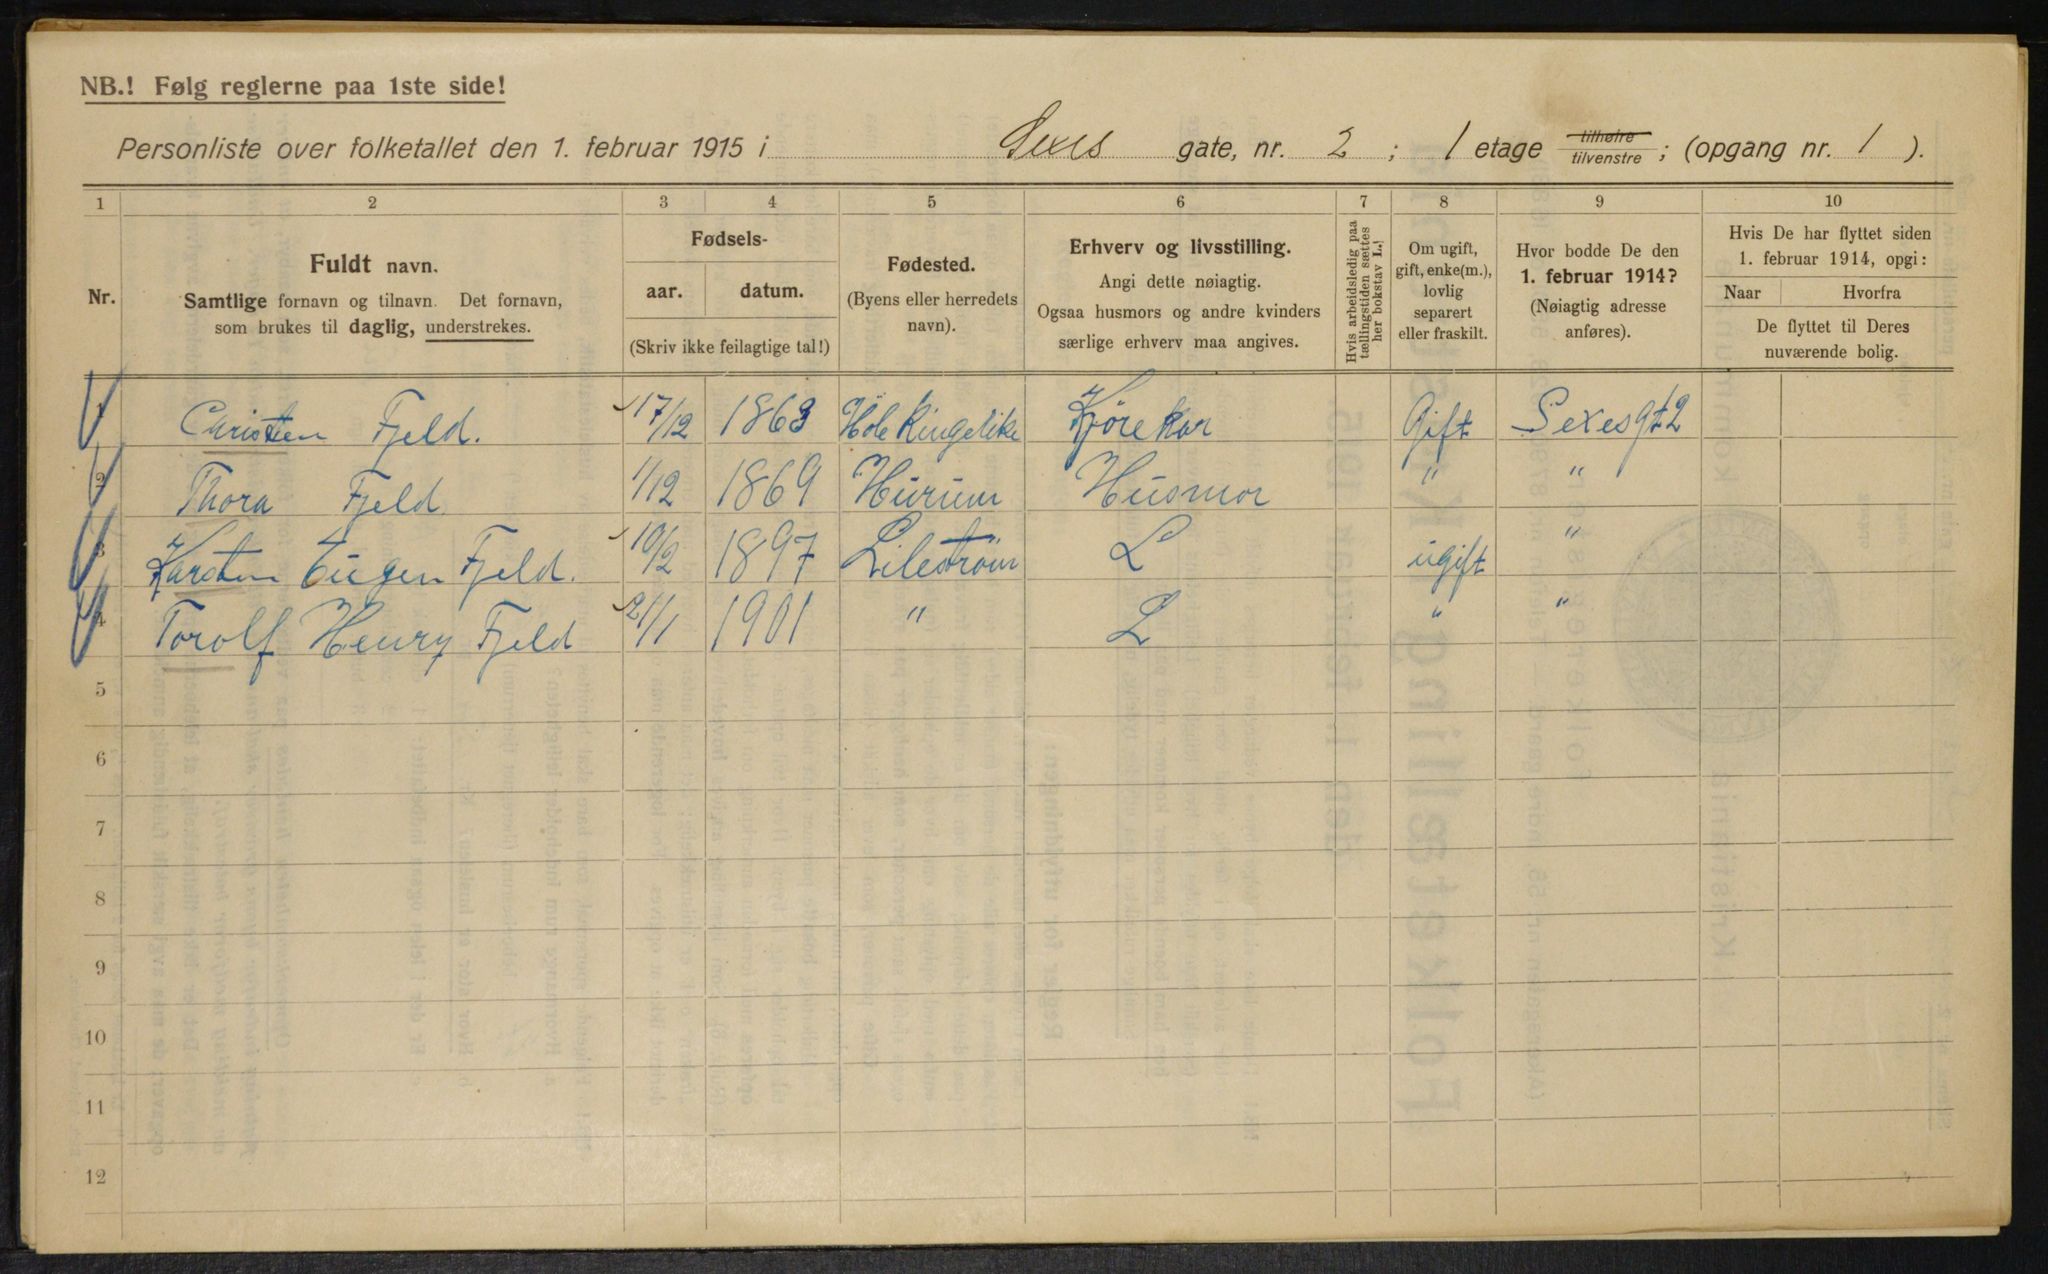 NB.! Følg reglerne paa 1ste side!
Personliste over folketallet den 1. februar 1915 i Sexes gate, nr. 2 ; 1 etage tilhøire tilvenstre ; (opgang nr. 1 ).
1 2 3 4 5 6 7 8 9 10
Nr.
Fuldt navn.
Samtlige fornavn og tilnavn. Det fornavn,
som brukes til daglig, understrekes.
Fødsels-
aar. datum.
(Skriv ikke feilagtige tal!)
Fødested.
(Byens eller herredets
navn).
Erhverv og livsstilling.
Angi dette nøiagtig.
Ogsaa husmors og andre kvinders
særlige erhverv maa angives.
Hvis arbeidsledig paa
tællingstiden sættes
her bokstav L.!
Om ugift,
gift, enke(m.),
lovlig
separert
eller fraskilt.
Hvor bodde De den
1. februar 1914?
(Nøiagtig adresse
anføres).
Hvis De har flyttet siden
1. februar 1914, opgi:
Naar Hvorfra
De flyttet til Deres
nuværende bolig.
1 Christen Fjeld. 17/12 1863 Hole Ringelike Kjørekar Gift Sexesgt 2
2 Thora Fjeld. 1/12 1869 Hurum Husmor " "
3 Karsten Eugen Fjeld. 10/2 1897 Lilestrøm L ugift "
4 Torolf Henry Fjeld 21/1 1901 " L " "
5
6
7
8
9
10
11
12